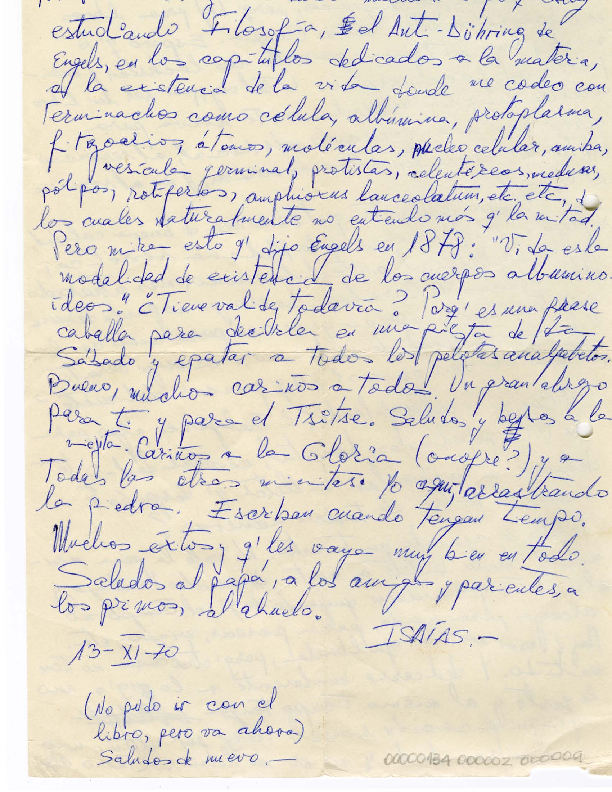 estudiando Filosofía, el Anti-Dühring de
Engels, en los capítulos dedicados a la materia,
a la existencia de la vida donde me codeo con
terminachos como célula, albúmina, protoplasma,
átomos, moléculas, núcleo celular, amiba,
vesícula germinal, protistas, celentéreos, medusas,
pólipos, rotíferos, amphioxus lanceolatum, etc. etc,
los cuales naturalmente no entiendo más q' la mitad.
Pero mira esto q' dijo Engels en 1878: "Vida es la
modalidad de existencia de los cuerpos albumino-
ideos." ¿Tiene validez todavía? Porq' es una frase
caballa para decirla en una fiesta de
Sábado y epatar a todos los pelotas analfabetos.
Bueno, muchos cariños a todos. Un gran abrazo
para ti y para el Tsitse. Saludos y besos a la
Cariños a la Gloria (onofre?), y a
todas las otras minitas. Yo aquí, arrastrando
la piedra. Escriban cuando tengan tiempo.
Muchos éxitos y q' les vaya muy bien en todo.
Saludos al papá, a los amigos y parientes, a
los primos, al abuelo.
ISAÍAS.-
13-XI-70
(No pudo ir con el
libro, pero va ahora)
Saludos de nuevo.—
00000134 000002 000009